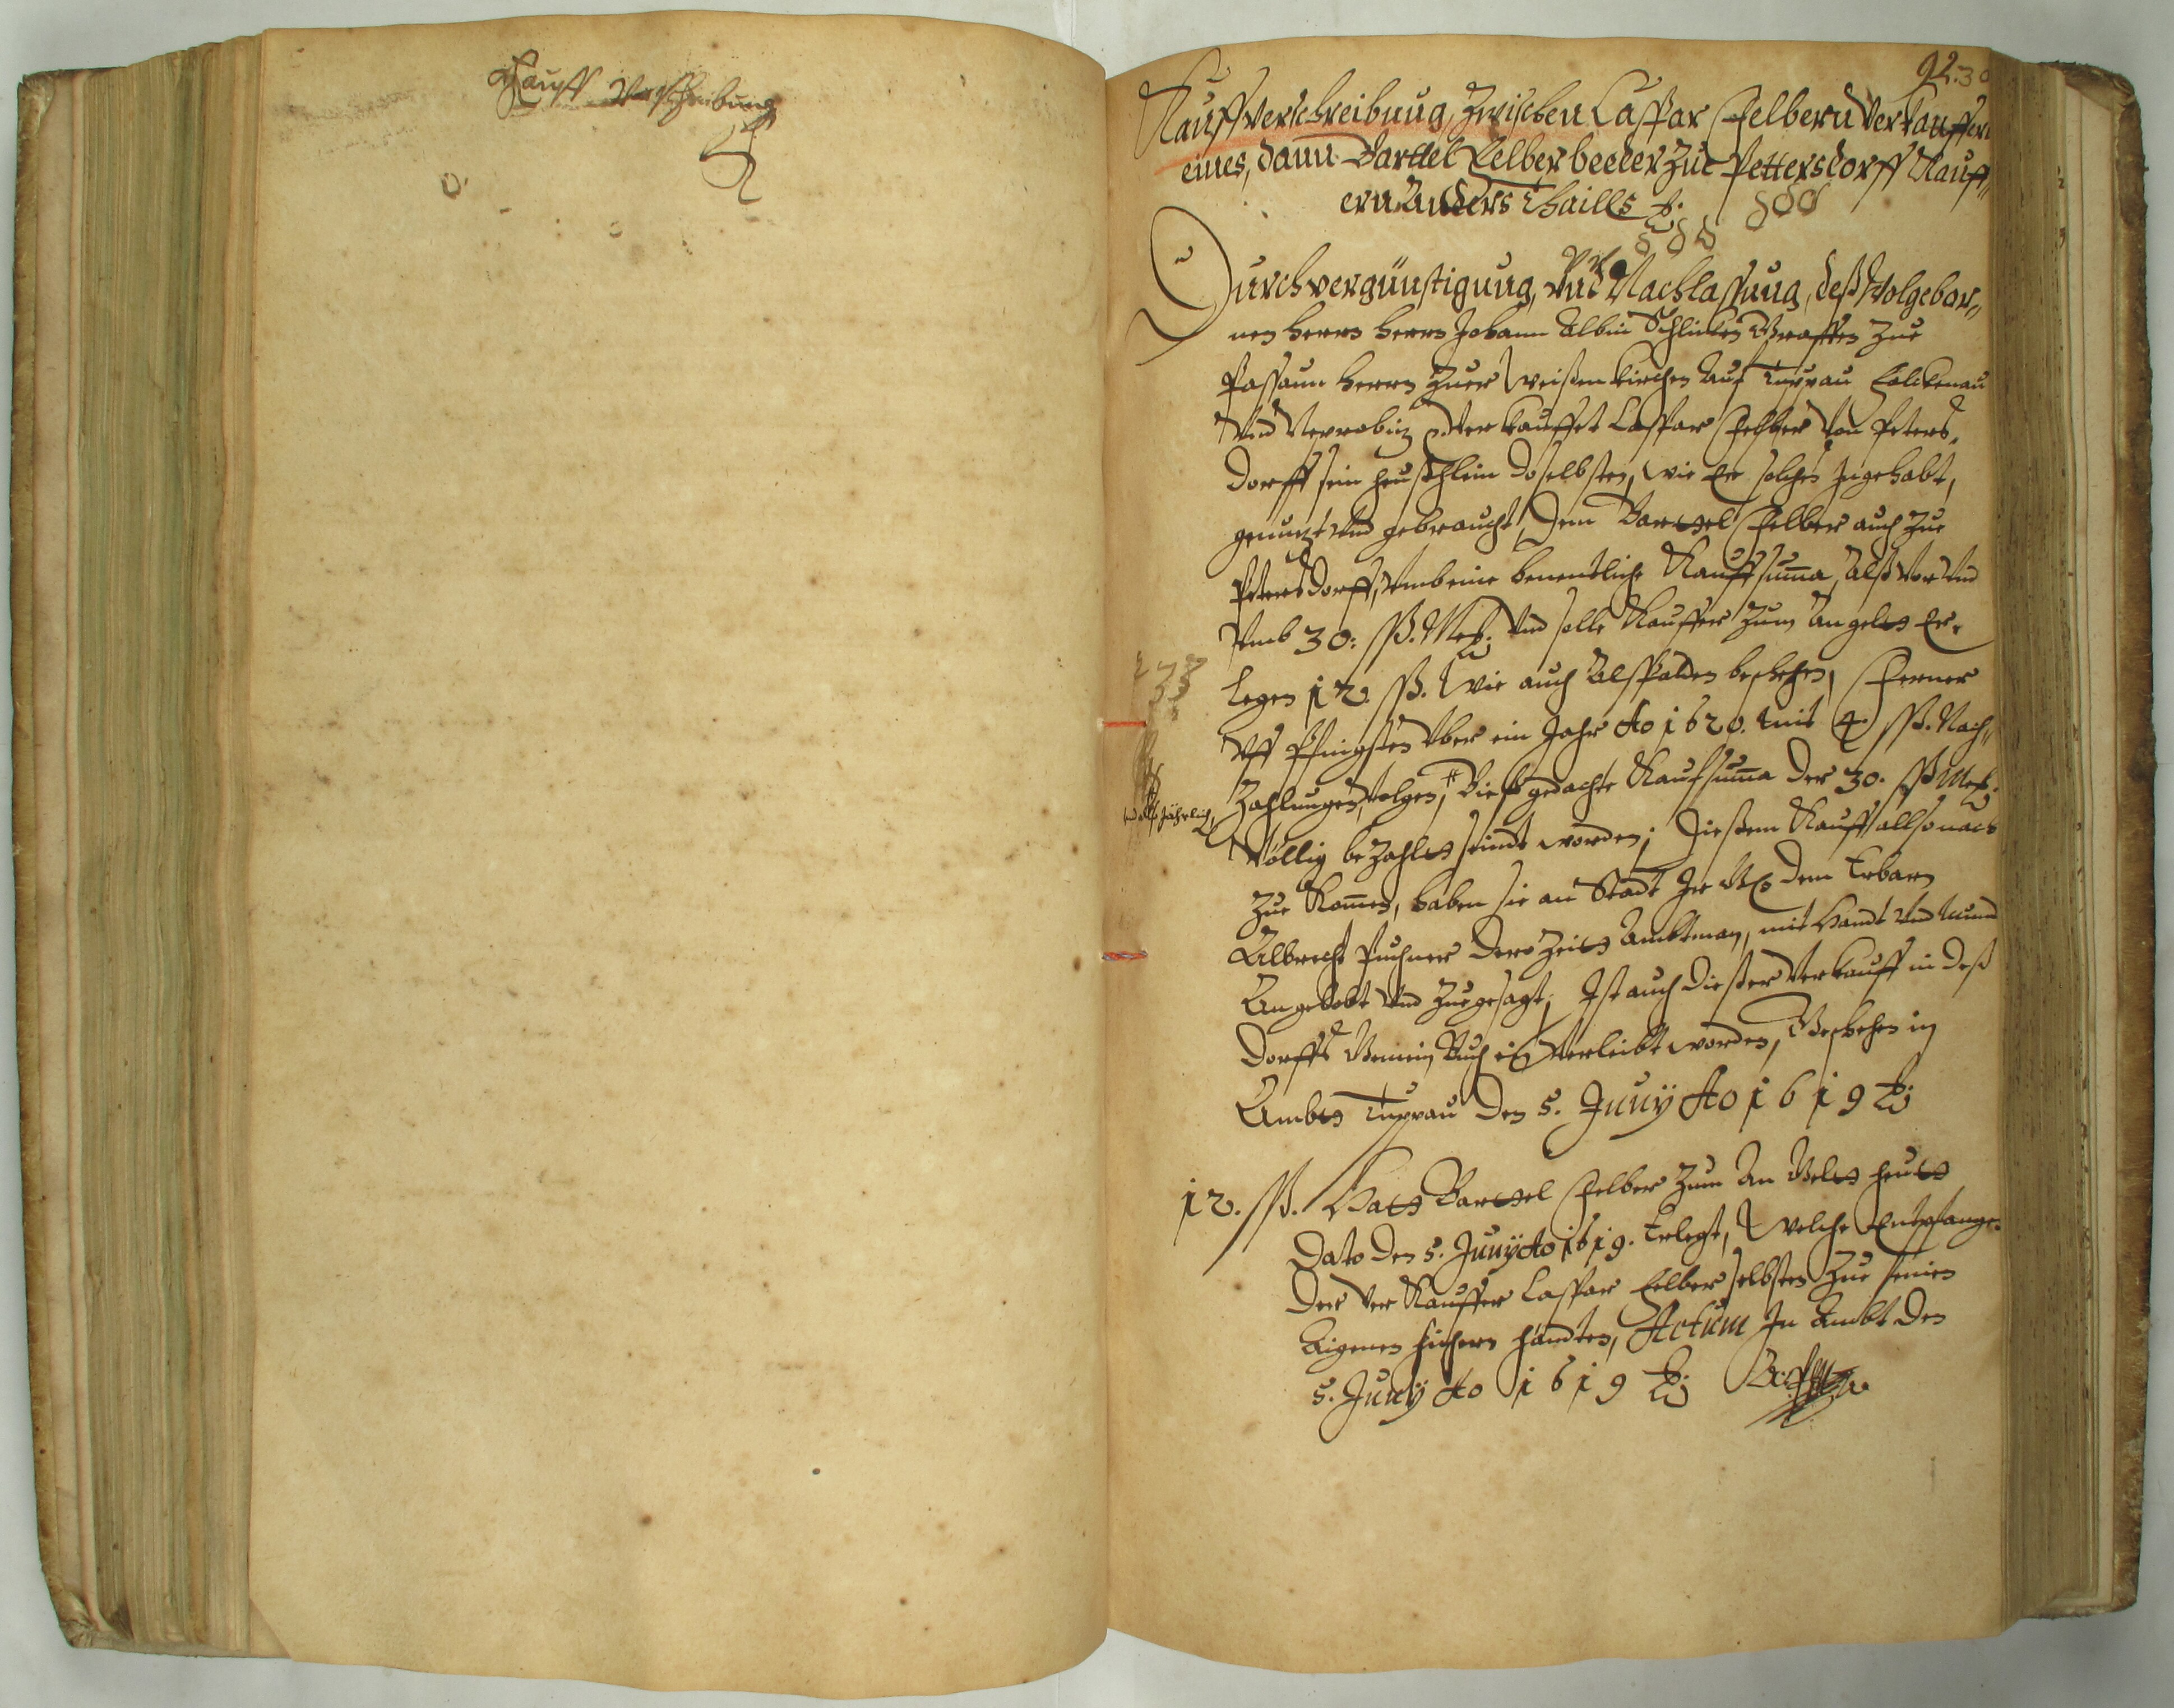 Kauff Verschreibung
92. 30
Kauffverschreibung, Zwischen Caspar Felbern Verkauffern
eines, dann Barttel Felber beeder Zue Pettersdorff Kauff„
ern Anders Thaills
Durch vergünstigung, vnd Nachlassung, deß Wolgebor„
nen Herrn Herrn Johann Albin Schlicken Graffen Zue
Passaun Herrn Zuer Weißenkirchen Auf Tuppau Falckenau
vnd verkauffet Caspar Felber von Peters„
dorff sein heußhlein doselbsten, wie Er solches Ingehabt,
genuzt vnd gebraucht, Dem Barthel Felber auch Zue
Petersdorff, vmb eine benentliche Kauffsuma, Alß vor vnd
vmb 30: ßß. Meß: vnd solle Kauffer Zum Angelt Er„
legen 12. ßß. Wie auch Alßbalden beschehen, Ferner
vff Pfingsten vber ein Jahr Ao 1620. mit 4. ßß. Nach„
Zahlungen, volgen, Bieß gedachte Kaufsuma der 30. ßß Meß.
vnd also Jährlich,
Völlig bezahlt seindt worden; Dießem Kauff allso nach
Zue Komen, haben sie an Stadt Ihr G dem Erbarn
Albrecht Puchner der Zeit Ambtman, mit Handt vnd Mund
Angelobt vnd Zuegesagt; Ist auch dießer verkauff in deß
dorffs Gemein Buch ein verleibt worden, Geschehen in
Ambt Tuppau den 5. Juny Ao 1619
12. ßß. Hatt Barthel Felber Zum An Gelt heut
Dato den 5. Juny Ao 1619. Erlegt, Welche Entpfangen
der ver Kauffer Caspar Felber selbsten Zue seinen
Eigenen sichern händten, Actum In Ambt den
5. Juny Ao 1619